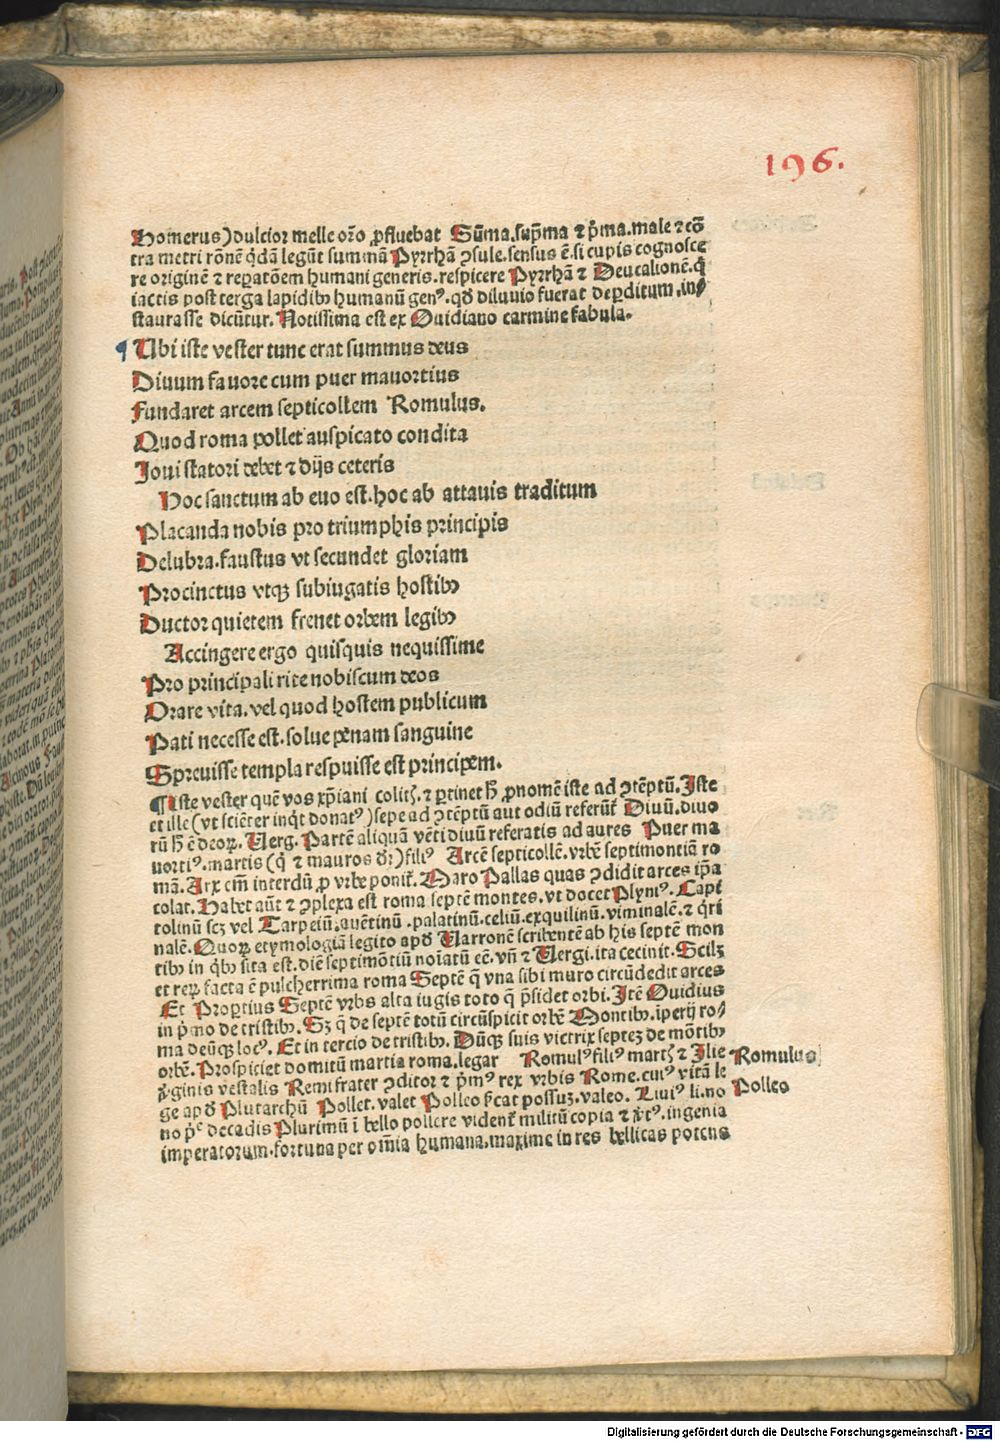 196.
Homerus) dulcior melle or̄o ꝓfluebat Sūma.sup̄ma ⁊ p̄ma.male ⁊ cō
tra metri rōnē q̄dā legūt summā Pyrrhā ꝯsule.sensus ē.si cupis cognosce
re originē ⁊ reꝑatōem humani generis.respicere Pyrrhā ⁊ Deucalionē.q̄
iactis post terga lapidibꝫ humanū genꝰ.qd̄ diluuio fuerat deꝑditum.in⸗
staurasse dicūtur. Notissima est ex Ouidiano carmine fabula.
¶ Ubi iste vester tunc erat summus deus
Diuum fauore cum puer mauortius
Fundaret arcem septicollem Romulus.
Quod roma pollet auspicato condita
Ioui statori debet ⁊ dijs ceteris
Hoc sanctum ab euo est.hoc ab attauis traditum
Placanda nobis pro triumphis principis
Delubra.faustus vt secundet gloriam
Procinctus vtqꝫ subiugatis hostibꝫ
Ductor quietem frenet orbem legibꝫ
Accingere ergo quisquis nequissime
Pro principali rite nobiscum deos
Orare vita.vel quod hostem publicum
Pati necesse est.solue penam sanguine
Spreuisse templa respuisse est principem.
¶ Iste vester quē vos xp̄iani colitꝭ.⁊ ꝑtinet h̄ ꝓnomē iste ad ꝯtēptū.Iste
et ille (vt sciēter inqͥt donatꝰ) sepe ad ꝯtēptū aut odiū referūt᷑ Diuū.diuo
rū h̄ ē deoꝝ. Uerg. Partē aliquā vēti diuū referatis ad aures Puer ma
uortiꝰ.martis (qͥ ⁊ mauros dr̄:) filiꝰ Arcē septicollē.vrbē septimontiā ro
mā. Arx em̄ interdū ꝓ vrbe ponit᷑. Maro Pallas quas ꝯdidit arces ip̄a
colat. Habet aūt ⁊ ꝯplexa est roma septē montes.vt docet Plyniꝰ. Capi
tolinū scꝫ vel Tarpeiū.auētinū.palatinū.celiū.exquilinū.viminalē.⁊ qͥri
nalē. Quoꝝ etymologiā legito apd̄ Uarronē scribentē ab his septē mon
tibꝫ in qͥbꝫ sita est.diē septimōtiū noīatū eē.vn̄ ⁊ Uergi.ita cecinit. Scilꝫ
et reꝝ facta ē pulcherrima roma Septē q̄ vna sibi muro circūdedit arces
Et Proꝑtius Septē vrbs alta iugis toto q̄ p̄sidet orbi. Itē Ouidius
in pͥmo de tristibꝫ. Sꝫ q̄ de septē totū circūspicit orbē Montibꝫ.iꝑerij ro⸗
ma deūqꝫ locꝰ. Et in tercio de tristibꝫ. Dūqꝫ suis victrix septeꝫ de mōtibꝫ
orbē. Prospiciet domitū martia roma.legar Romulꝰ filiꝰ martꝭ ⁊ Ilie
v̓ginis vestalis Remi frater ꝯditor ⁊ pͥmꝰ rex vrbis Rome.cuiꝰ vitā le
ge apd̄ Plutarchū Pollet.valet Polleo ſ̓cat possuꝫ.valeo. Liuiꝰ li.no
no pͥᵉ decadis Plurimū ī bello pollere vident᷑ militū copia ⁊ v̓tꝰ.ingenia
imperatorum.fortuna per om̄ia humana.maxime in res bellicas potens
Romulus
Polleo
Digitalisierung gefördert durch die Deutsche Forschungsgemeinschaft - DFG